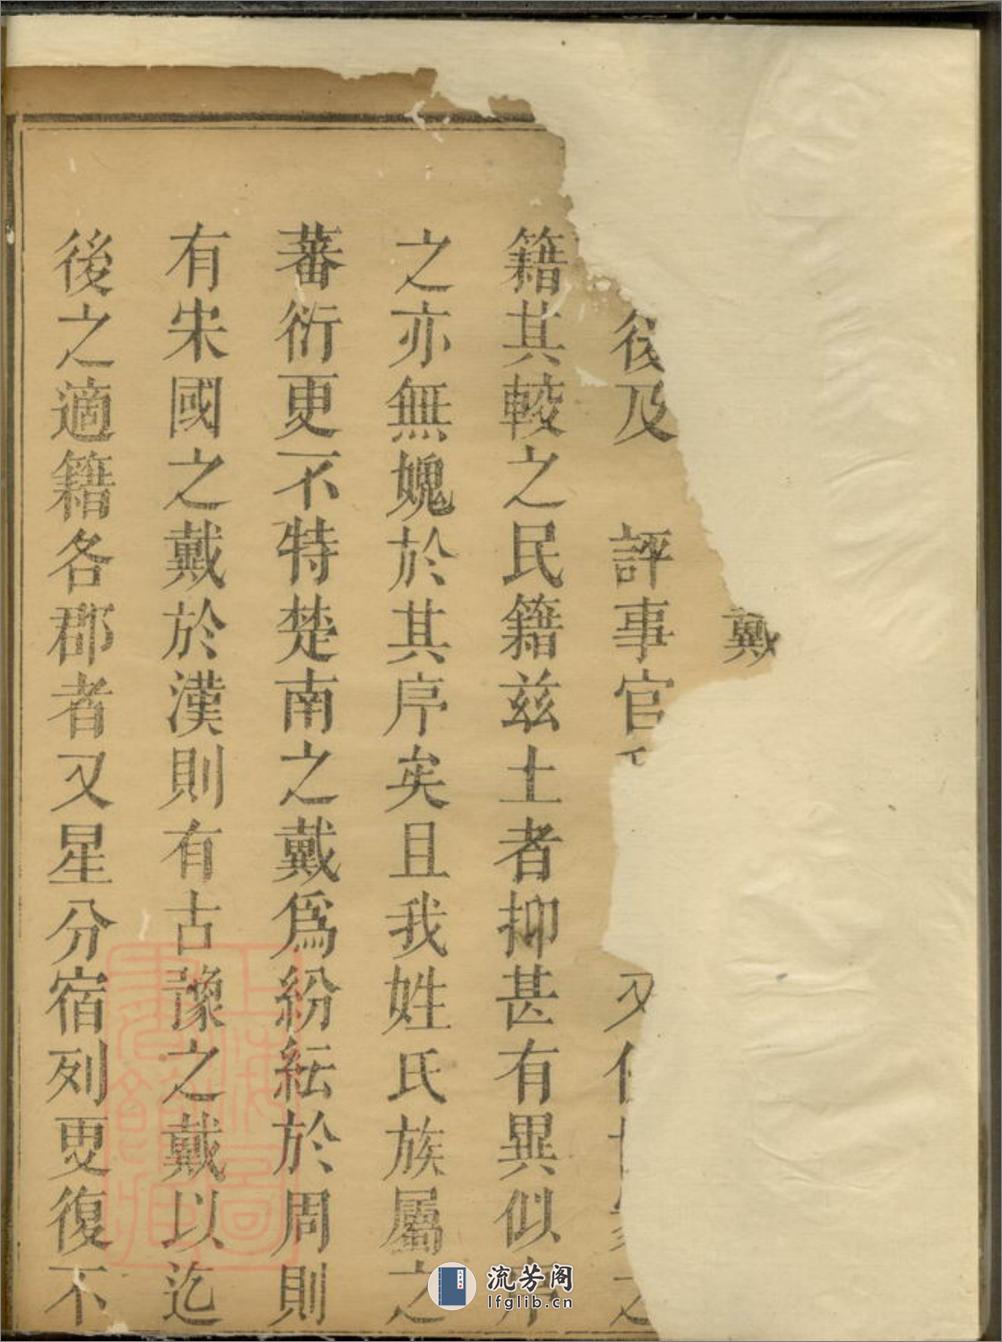 戴
後及 評事官 又 之
籍其較之民籍兹土者抑甚有異似
之亦無媿於其序矣且我姓氏族屬之
蕃衍更不特楚南之戴爲紛紜於周則
有宋國之戴於漢則有古豫之戴以迄
後之適籍各郡者又星分宿列更復不
上海圖書館藏
流芳阁
lfglib.cn